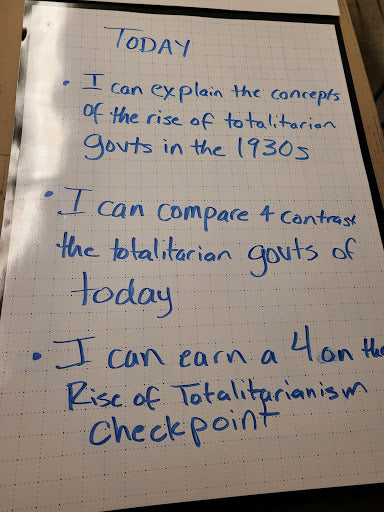 TODAY
• I can explain the concepts
of the rise of totalitarian
govts in the 1930s
• I can compare & contrast
the totalitarian govts of
today
• I can earn a 4 on the
Rise of Totalitarianism
Checkpoint